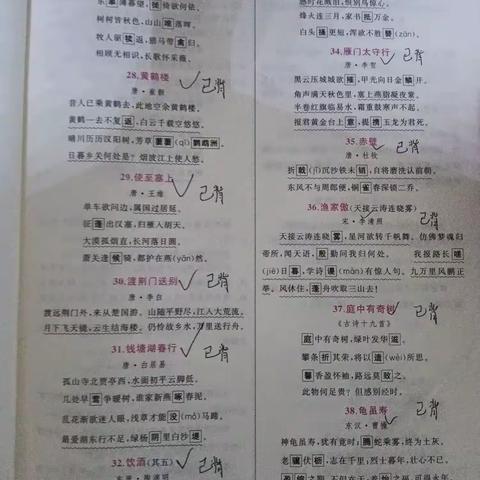 东皋薄暮望，徙倚欲何依。
树树皆秋色，山山唯落晖。
牧人驱犊返，猎马带禽归。
相顾无相识，长歌怀采薇。
28.黄鹤楼 已背
唐·崔颢
昔人已乘黄鹤去，此地空余黄鹤楼。
黄鹤一去不复返，白云千载空悠悠。
晴川历历汉阳树，芳草萋萋(qī)鹦鹉洲。
日暮乡关何处是？烟波江上使人愁。
29.使至塞上 已背
唐·王维
单车欲问边，属国过居延。
征蓬出汉塞，归雁入胡天。
大漠孤烟直，长河落日圆。
萧关逢候骑，都护在燕(yān)然。
30.渡荆门送别 已背
唐·李白
渡远荆门外，来从楚国游。山随平野尽，江入大荒流。
月下飞天镜，云生结海楼。仍怜故乡水，万里送行舟。
31.钱塘湖春行 已背
唐·白居易
孤山寺北贾亭西，水面初平云脚低。
几处早莺争暖树，谁家新燕啄春泥。
乱花渐欲迷人眼，浅草才能没(mò)马蹄。
最爱湖东行不足，绿杨阴里白沙堤。
32.饮酒(其五) 已背
东晋·陶渊明
感时花溅泪，恨别鸟惊心。
烽火连三月，家书抵万金。
白头搔更短，浑欲不胜簪(zān)。
34.雁门太守行 已背
唐·李贺
黑云压城城欲摧，甲光向日金鳞开。
角声满天秋色里，塞上燕脂凝夜紫。
半卷红旗临易水，霜重鼓寒声不起。
报君黄金台上意，提携玉龙为君死。
35.赤壁 已背
唐·杜牧
折戟(jǐ)沉沙铁未销，自将磨洗认前朝。
东风不与周郎便，铜雀春深锁二乔。
36.渔家傲(天接云涛连晓雾) 已背
宋·李清照
天接云涛连晓雾，星河欲转千帆舞。仿佛梦魂归
帝所，闻天语，殷勤问我归何处。 我报路长嗟
(jiē)日暮，学诗谩(màn)有惊人句。九万里风鹏正
举。风休住，蓬舟吹取三山去！
37.庭中有奇树 已背
《古诗十九首》
庭中有奇树，绿叶发华滋。
攀条折其荣，将以遗(wèi)所思。
馨香盈怀袖，路远莫致之。
此物何足贵？但感别经时。
38.龟虽寿 已背
东汉·曹操
神龟虽寿，犹有竟时；腾蛇乘雾，终为土灰。
老骥伏枥，志在千里；烈士暮年，壮心不已。
盈缩之期，不但在天；养怡之福，可得永年。